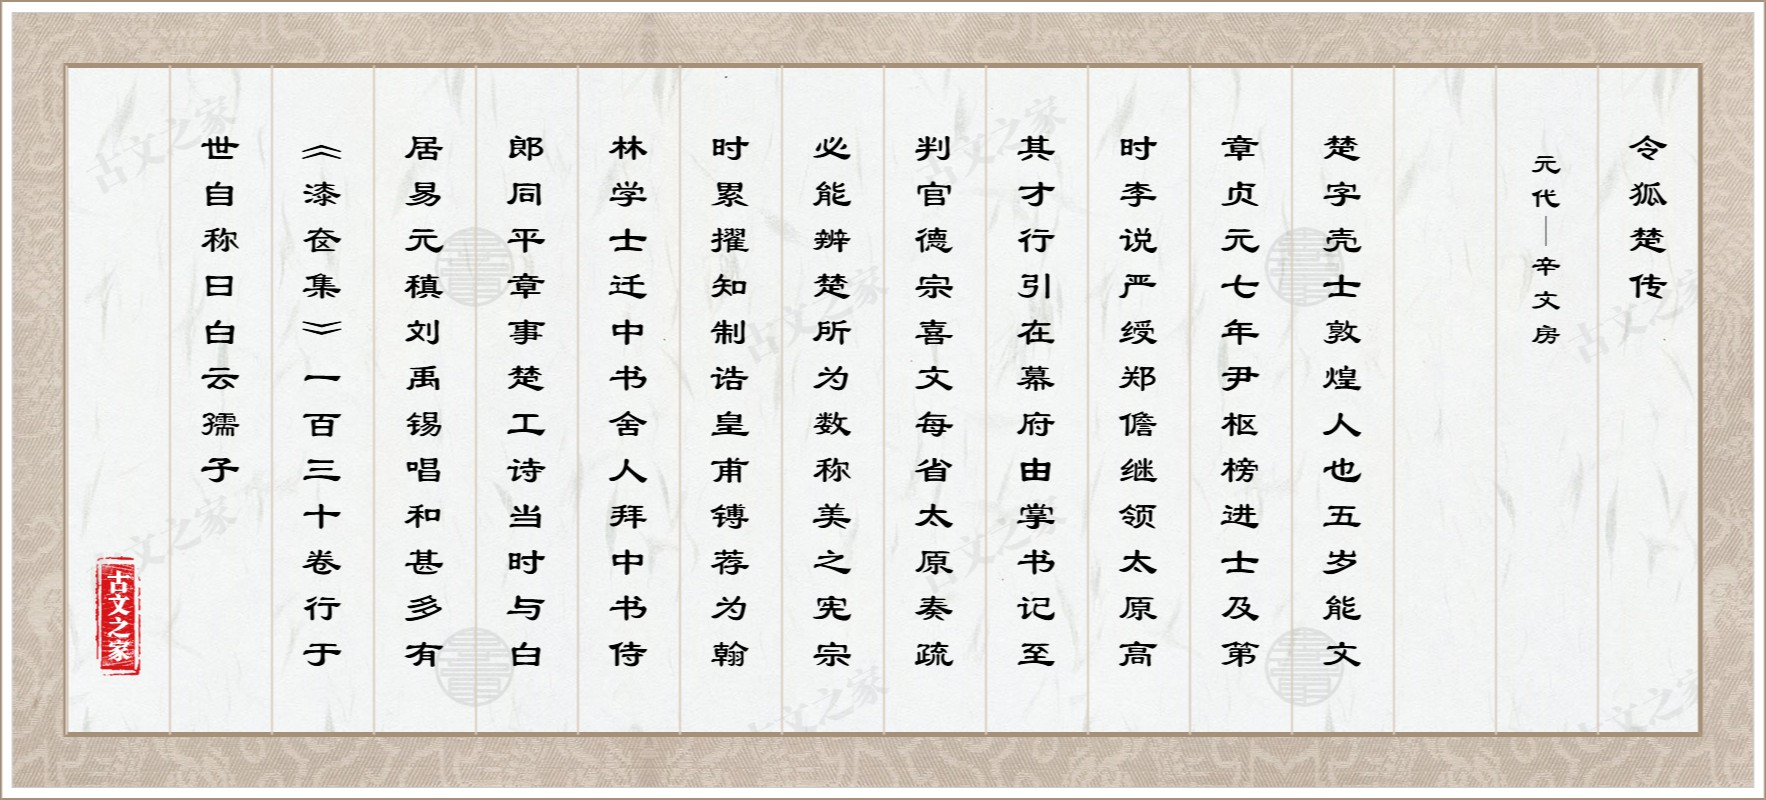 令狐楚传
元代｜辛文房
楚字壳士敦煌人也五岁能文
章贞元七年尹枢榜进士及第
时李说严绶郑儋继领太原高
其才行引在幕府由掌书记至
判官德宗喜文每省太原奏疏
必能辨楚所为数称美之宪宗
时累擢知制诰皇甫镈荐为翰
林学士迁中书舍人拜中书侍
郎同平章事楚工诗当时与白
居易元稹刘禹锡唱和甚多有
《漆奁集》一百三十卷行于
世自称曰白云孺子
古文之家